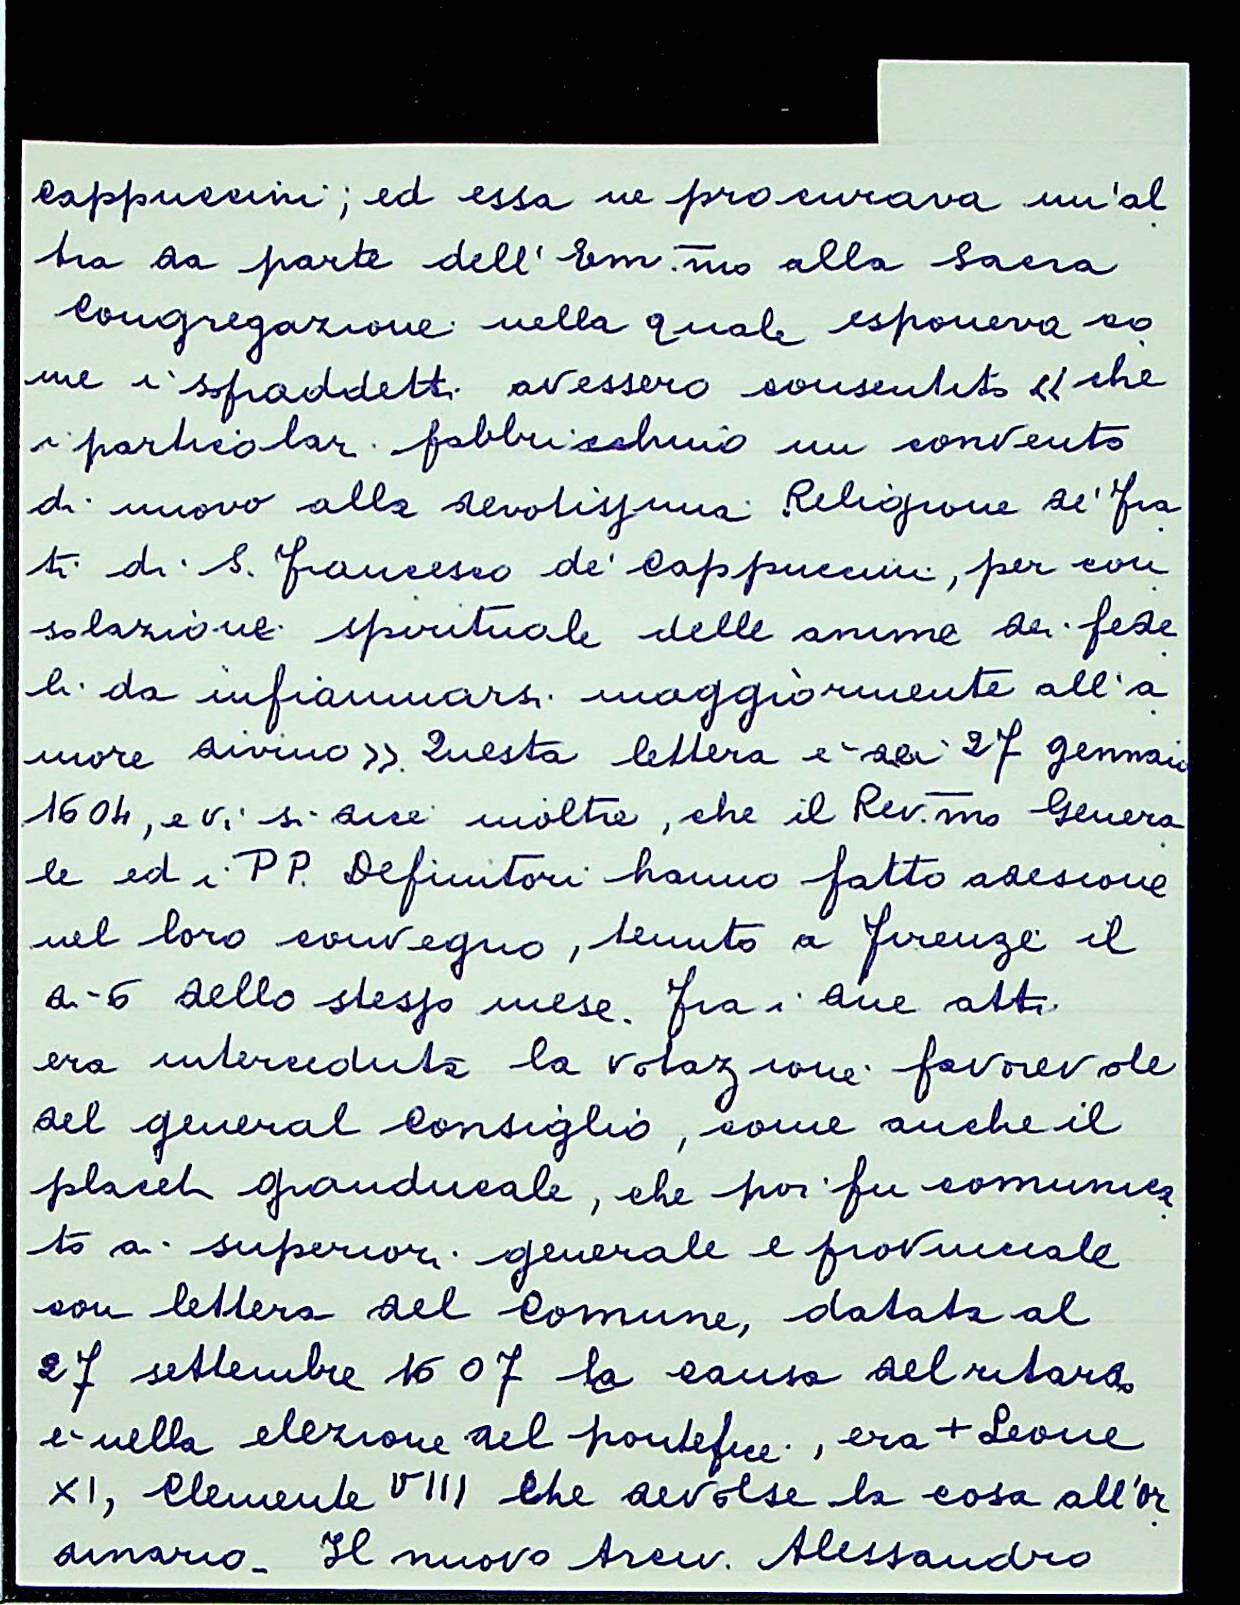 cappuccini; ed essa ne procurava un'al
tra da parte dell'Em.mo alla Sacra
Congregazione nella quale esponeva co
me i sopraddetti avessero consentito << che
i particolari fabbrichino un convento
di nuovo alla devotissima Religione de' Fra
ti di S. Francesco de' Cappuccini, per con
solazione spirituale delle anime dei fede
li da infiammarsi maggiormente all'a
more divino >>. Questa lettera è dei 27 gennaio
1604, e vi si dice inoltre, che il Rev.mo Genera
le ed i PP. Definitori hanno fatto adesione
nel loro convegno, tenuto a Firenze il
dì 6 dello stesso mese. Fra i due atti
era interceduta la votazione favorevole
del general Consiglio, come anche il
placet granducale, che poi fu comunica
to ai superiori generale e provinciale
con lettera del Comune, datata al
27 settembre 1607 la causa del ritardo
è nella elezione del pontefice, era + Leone
XI, Clemente VIII che devolse la cosa all'or
dinario - Il nuovo Arciv. Alessandro